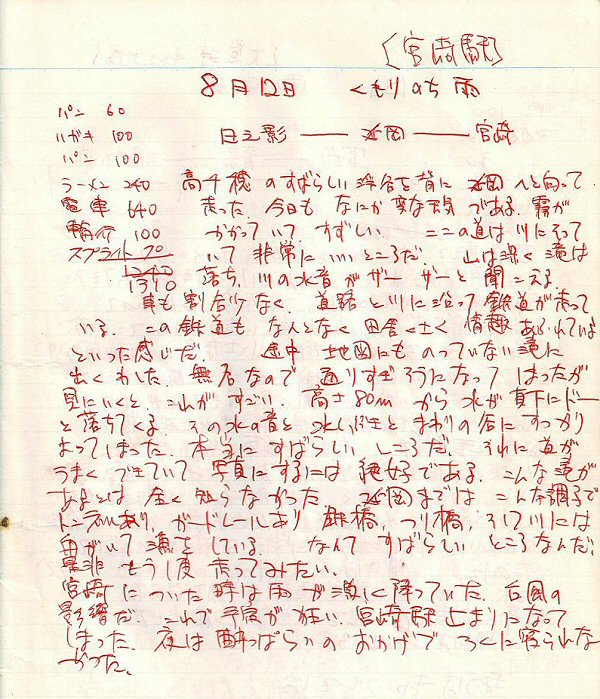 [宮崎駅]
8月12日 くもりのち雨
パン 60
ハガキ 100
日之影 ── 延岡 ── 宮崎
パン 100
ラーメン 240
高千穂のすばらしい渓谷を背に延岡へと向って
電車 640
走った. 今日もなにか変な天気である. 霧が
輪行 100
かかっていて, すずしい. ここの道は川にそって
スプライト 70
いて非常にいいところだ. 山は深く滝は
1240
1310
落ち, 川の水音がザーザーと聞こえる.
車も割合少なく. 道路と川に沿って鉄道が走って
いる. この鉄道もなんとなく田舎くさく情趣あふれている
といった感じだ. 途中地図にものっていない滝に
出くわした. 無名なので通りすぎそうになってしまったが
見にいくと これがすごい. 高さ80mから水が真下にドー
と落ちてくる その水の音と水しぶきとまわりの谷にすっかり
まいってしまった. 本当にすばらしいところだ. それに道が
うまくできていて写真にするには絶好である. こんな滝が
あるとは全く知らなかった 延岡まではこんな調子で
トンネルあり, ガードレールあり 鉄橋, つり橋, そして川には
曲がいて 漁をしている. なんてすばらしいところなんだ.
是非もう1度走ってみたい.
宮崎についた時は雨が激しく降っていた. 台風の
影響だ. これで予定が狂い. 宮崎駅止まりになって
しまった. 夜は酔っぱらいのおかげでろくに寝られな
かった.